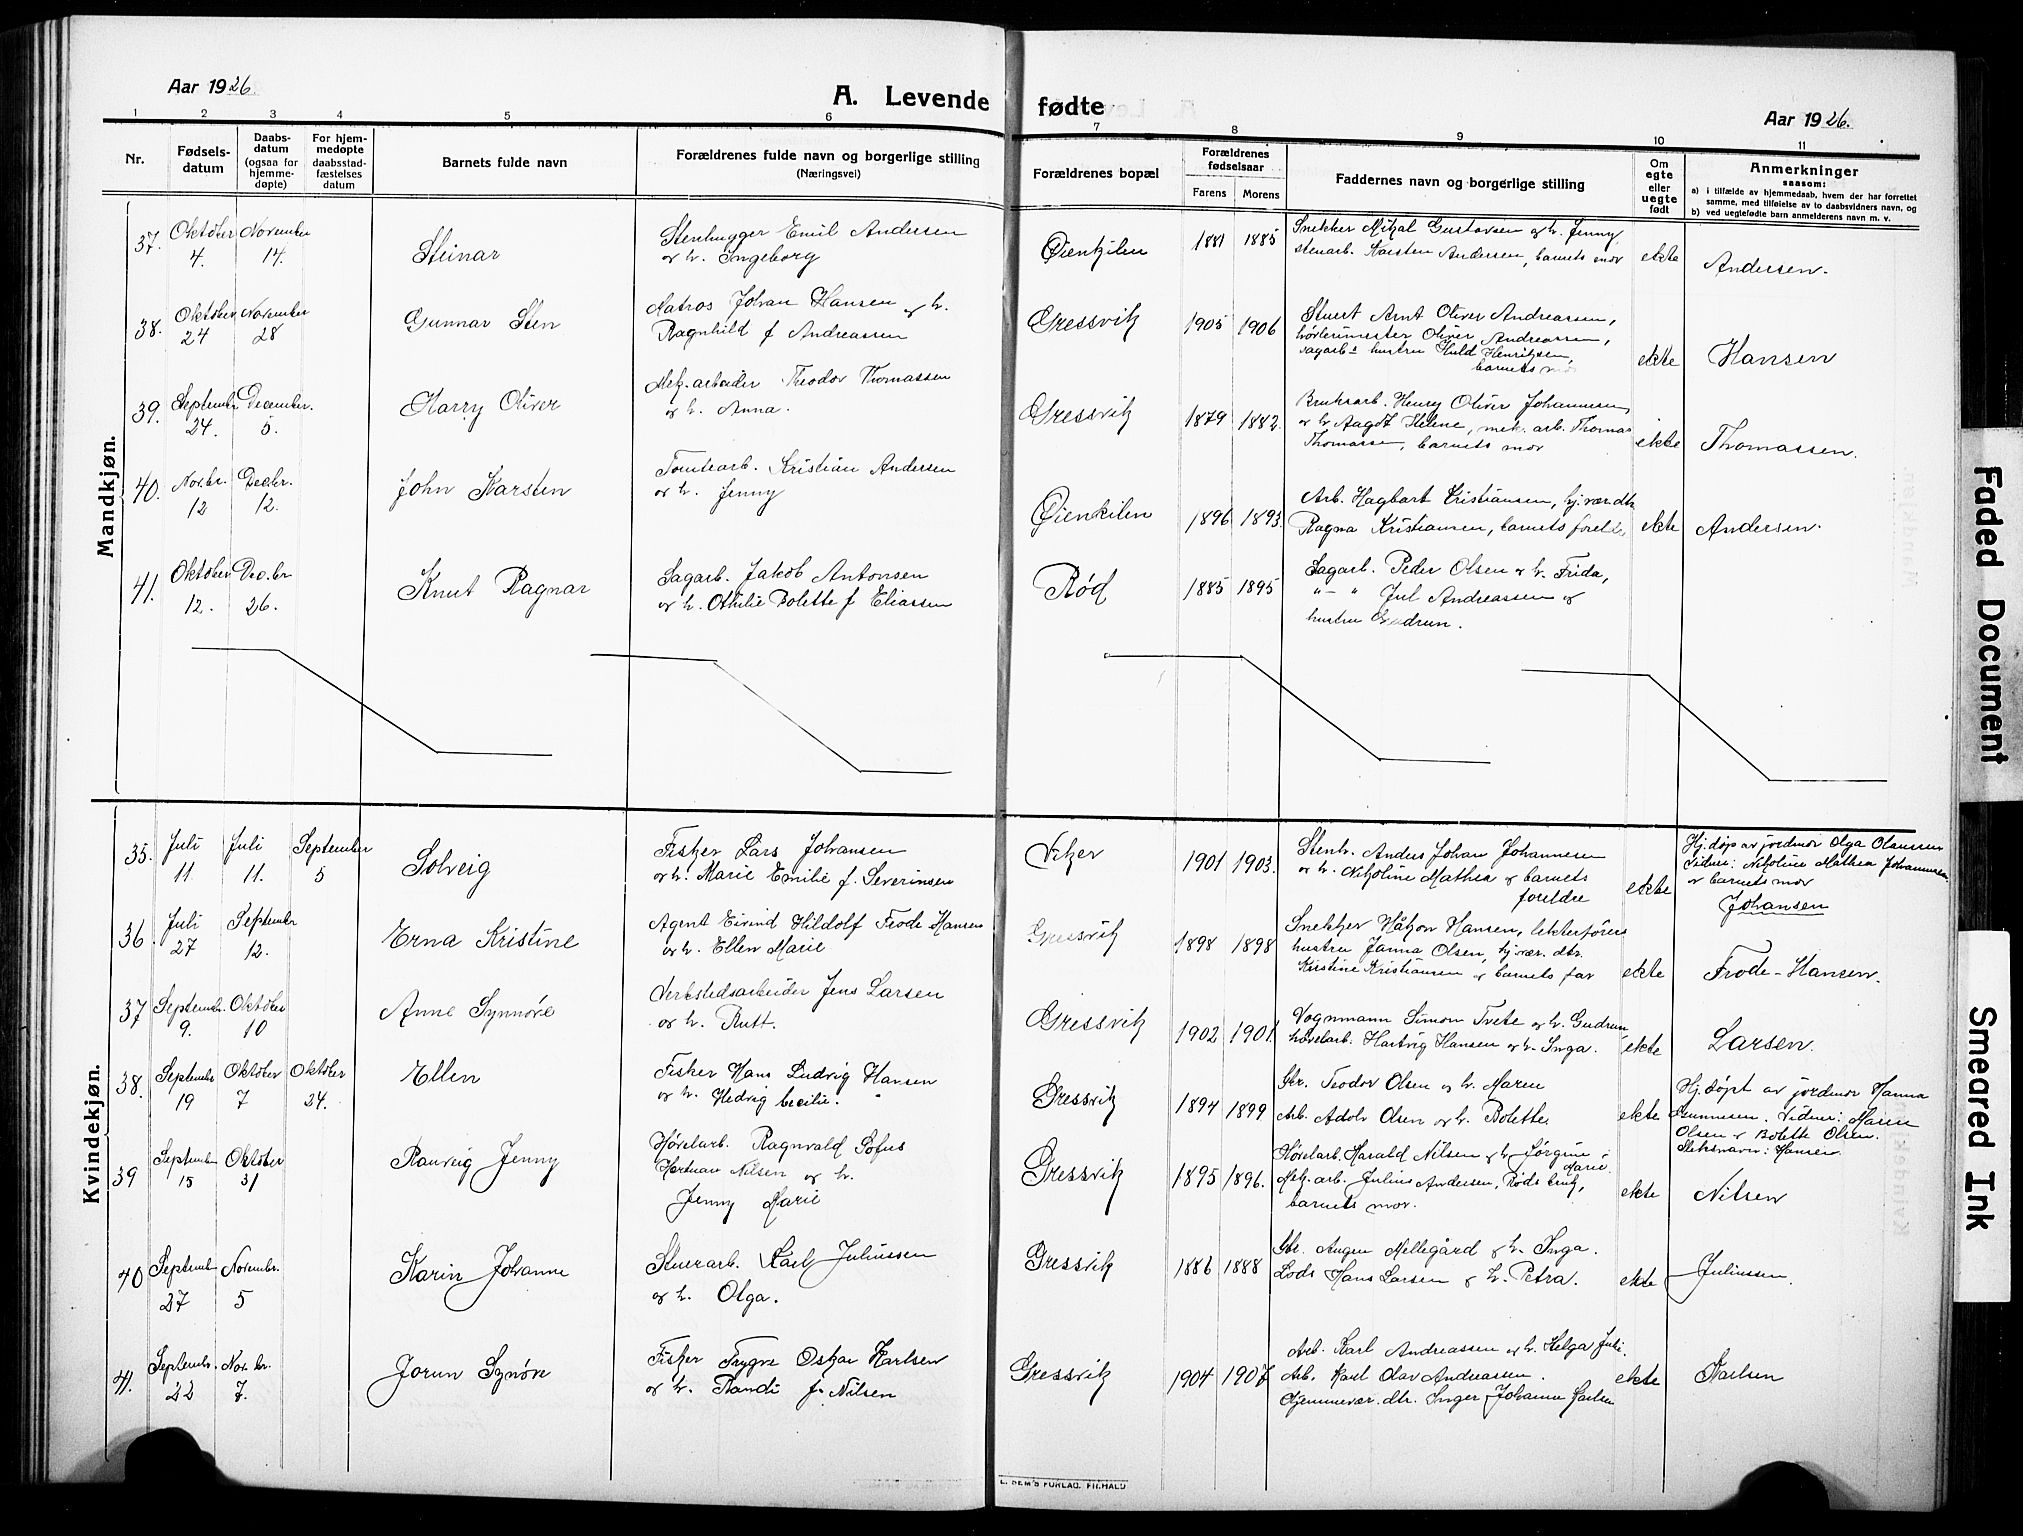 Aar 1926.
A. Levende fødte
Aar 1926.
1 2 3 4 5 6 7 8 9 10 11
Nr.
Fødsels-
datum
Daabs-
datum
(ogsaa for
hjemme-
døpte)
For hjem-
medøpte
daabsstad-
fæstelses
datum
Barnets fulde navn
Forældrenes fulde navn og borgerlige stilling
(Næringsvei)
Forældrenes bopæl
Forældrenes
fødselsaar
Farens Morens
Faddernes navn og borgerlige stilling
Om
egte
eller
uegte
født
Anmerkninger
saasom:
a) i tilfælde av hjemmedaab, hvem der har forrettet
samme, med tilføielse av to daabsvidners navn, og
b) ved uegtefødte barn anmelderens navn m. v.
Mandkjøn.
37. Oktober 4. November 14.
Steinar
Stenhugger Emil Andersen
og h. Ingeborg
Øienkilen 1881 1885
Snekker Mikal Gustavsen og h. Jenny,
stenarb. Karsten Andersen, barnets mor
ekte
Andersen.
38. Oktober 24 November 28
Gunnar Sten
Matros Johan Hansen og h.
Ragnhild f Andreassen
Gressvik 1905 1906
Stuert Arnt Oliver Andreassen,
høvlerimester Oliver Andreassen,
sagarbs hustru Huld Henriksen,
barnets mor
ekte
Hansen
39. September 24. December 5.
Harry Oliver
Mek. arbeider Theodor Thomassen
og h. Anna.
Gressvik 1879 1882.
Bruksarb. Henry Oliver Johannesen
og h Aagot Helene, mek. arb. Thomas
Thomassen, barnets mor
ekte
Thomassen.
40. Nov.br. 12 Decbr. 12.
John Karsten
Tomtearb. Kristian Andersen
og h. Jenny
Øienkilen 1896 1893.
Arb. Hagbart Kristiansen, hj. vær. dtr.
Ragna Kristiansen, barnets foreldre
ekte
Andersen.
41. Oktober 12. Dec.br 26.
Knut Ragnar
Sagarb. Jakob Antonsen
og h. Othilie Bolette f Eliassen
Rød 1885 1895
Sagarb. Peder Olsen og h. Frida,
" - " Jul Andreassen og
hustru Gudrun.
Kvindekjøn.
35. Juli 11. Juli 11. September 5
Solveig
Fisker Lars Johansen
og h. Marie Emilie f. Severinsen
Viker 1901 1903.
Stenh. Anders Johan Johannesen
og h. Nikoline Mathea og barnets
foreldre
ekte
Hj. døp av jordmor Olga Olaussen
Vidner: Nikoline Mathea Johannesen
og barnets mor
Johansen
36. Juli 27 September 12.
Erna Kristine
Agent Eivind Hildolf Frode Hansen
og h. Ellen Marie
Gressvik 1898 1898
Snekker Håkon Hansen, lekterførers
hustru Janna Olsen, hj. vær. dtr.
Kristine Kristiansen og barnets far
ekte
Frode-Hansen.
37 September 9. Oktober 10
Anne Synnøve
Verkstedsarbeider Jens Larsen
og h. Rutt.
Gressvik 1902 1901.
Vognmann Simon Tvete og h. Gudrun,
høvelarb. Hartvig Hansen og h. Inga.
ekte
Larsen.
38. September 19 Oktober 7 Oktober 24.
Ellen
Fisker Hans Ludvig Hansen
og h. Hedvig Cecilie.
Gressvik 1894 1899
Gbr. Teodor Olsen og h. Maren
Arb. Adolv Olsen og h. Bolette.
ekte
Hj. døpt av jordmor Hanna
Gunnesen. Vidner: Maren
Olsen og Bolette Olsen.
Slektsnavn: Hansen
39 September 15 Oktober 31
Ranveig Jenny
Høvelarb. Ragnvald Sofus
Herman Nilsen og h.
Jenny Marie
Gressvik 1895 1896.
Høvelarb. Harald Nilsen og h Jørgine
Marie.
Mek. arb. Julius Andersen, Røds bruk,
barnets mor.
ekte
Nilsen
40 Septemb. 27 Novembr. 5
Karin Johanne
Stuerarb. Karl Juliussen
og h. Olga.
Gressvik 1886 1888
Gbr. Augen Mellegård og h. Inga.
Lods Hans Larsen og h. Petra.
ekte
Juliussen.
41. Septembr. 22 Nov. br. 7.
Jorun Synøve
Fisker Trygve Oskar Karlsen
og h. Randi f. Nilsen
Gressvik 1904 1907
Arb. Karl Andreassen og h. Helga Juli.
Arb. Karl Olav Andreassen.
Hjemmevær. dtr. Inger Johanne Karlsen
ekte
Karlsen
Faded Document
Smeared Ink